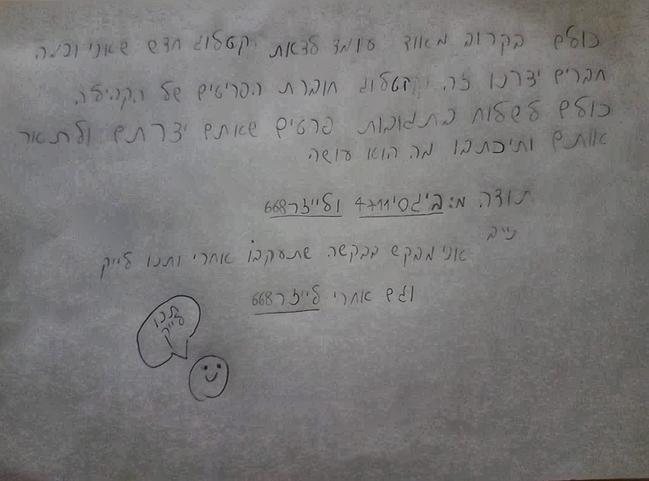 כולם בקרוב מאוד עומד לצאת קטלוג חדש שאני וכמה
חברים יצרנו זה קטלוג חוברת הפריטים של הקהילה
כולם לשלוח בתגובות פרטים שאתם יצרתם ולתאר
אותם ותיכתבו מה הוא עושה
תודה מ: ביגסי4711 ולייזר668
נייב
אני מבקש בבקשה שתעקבו אחרי ותנו לייק
וגם אחרי לייזר668
תנו
לייק